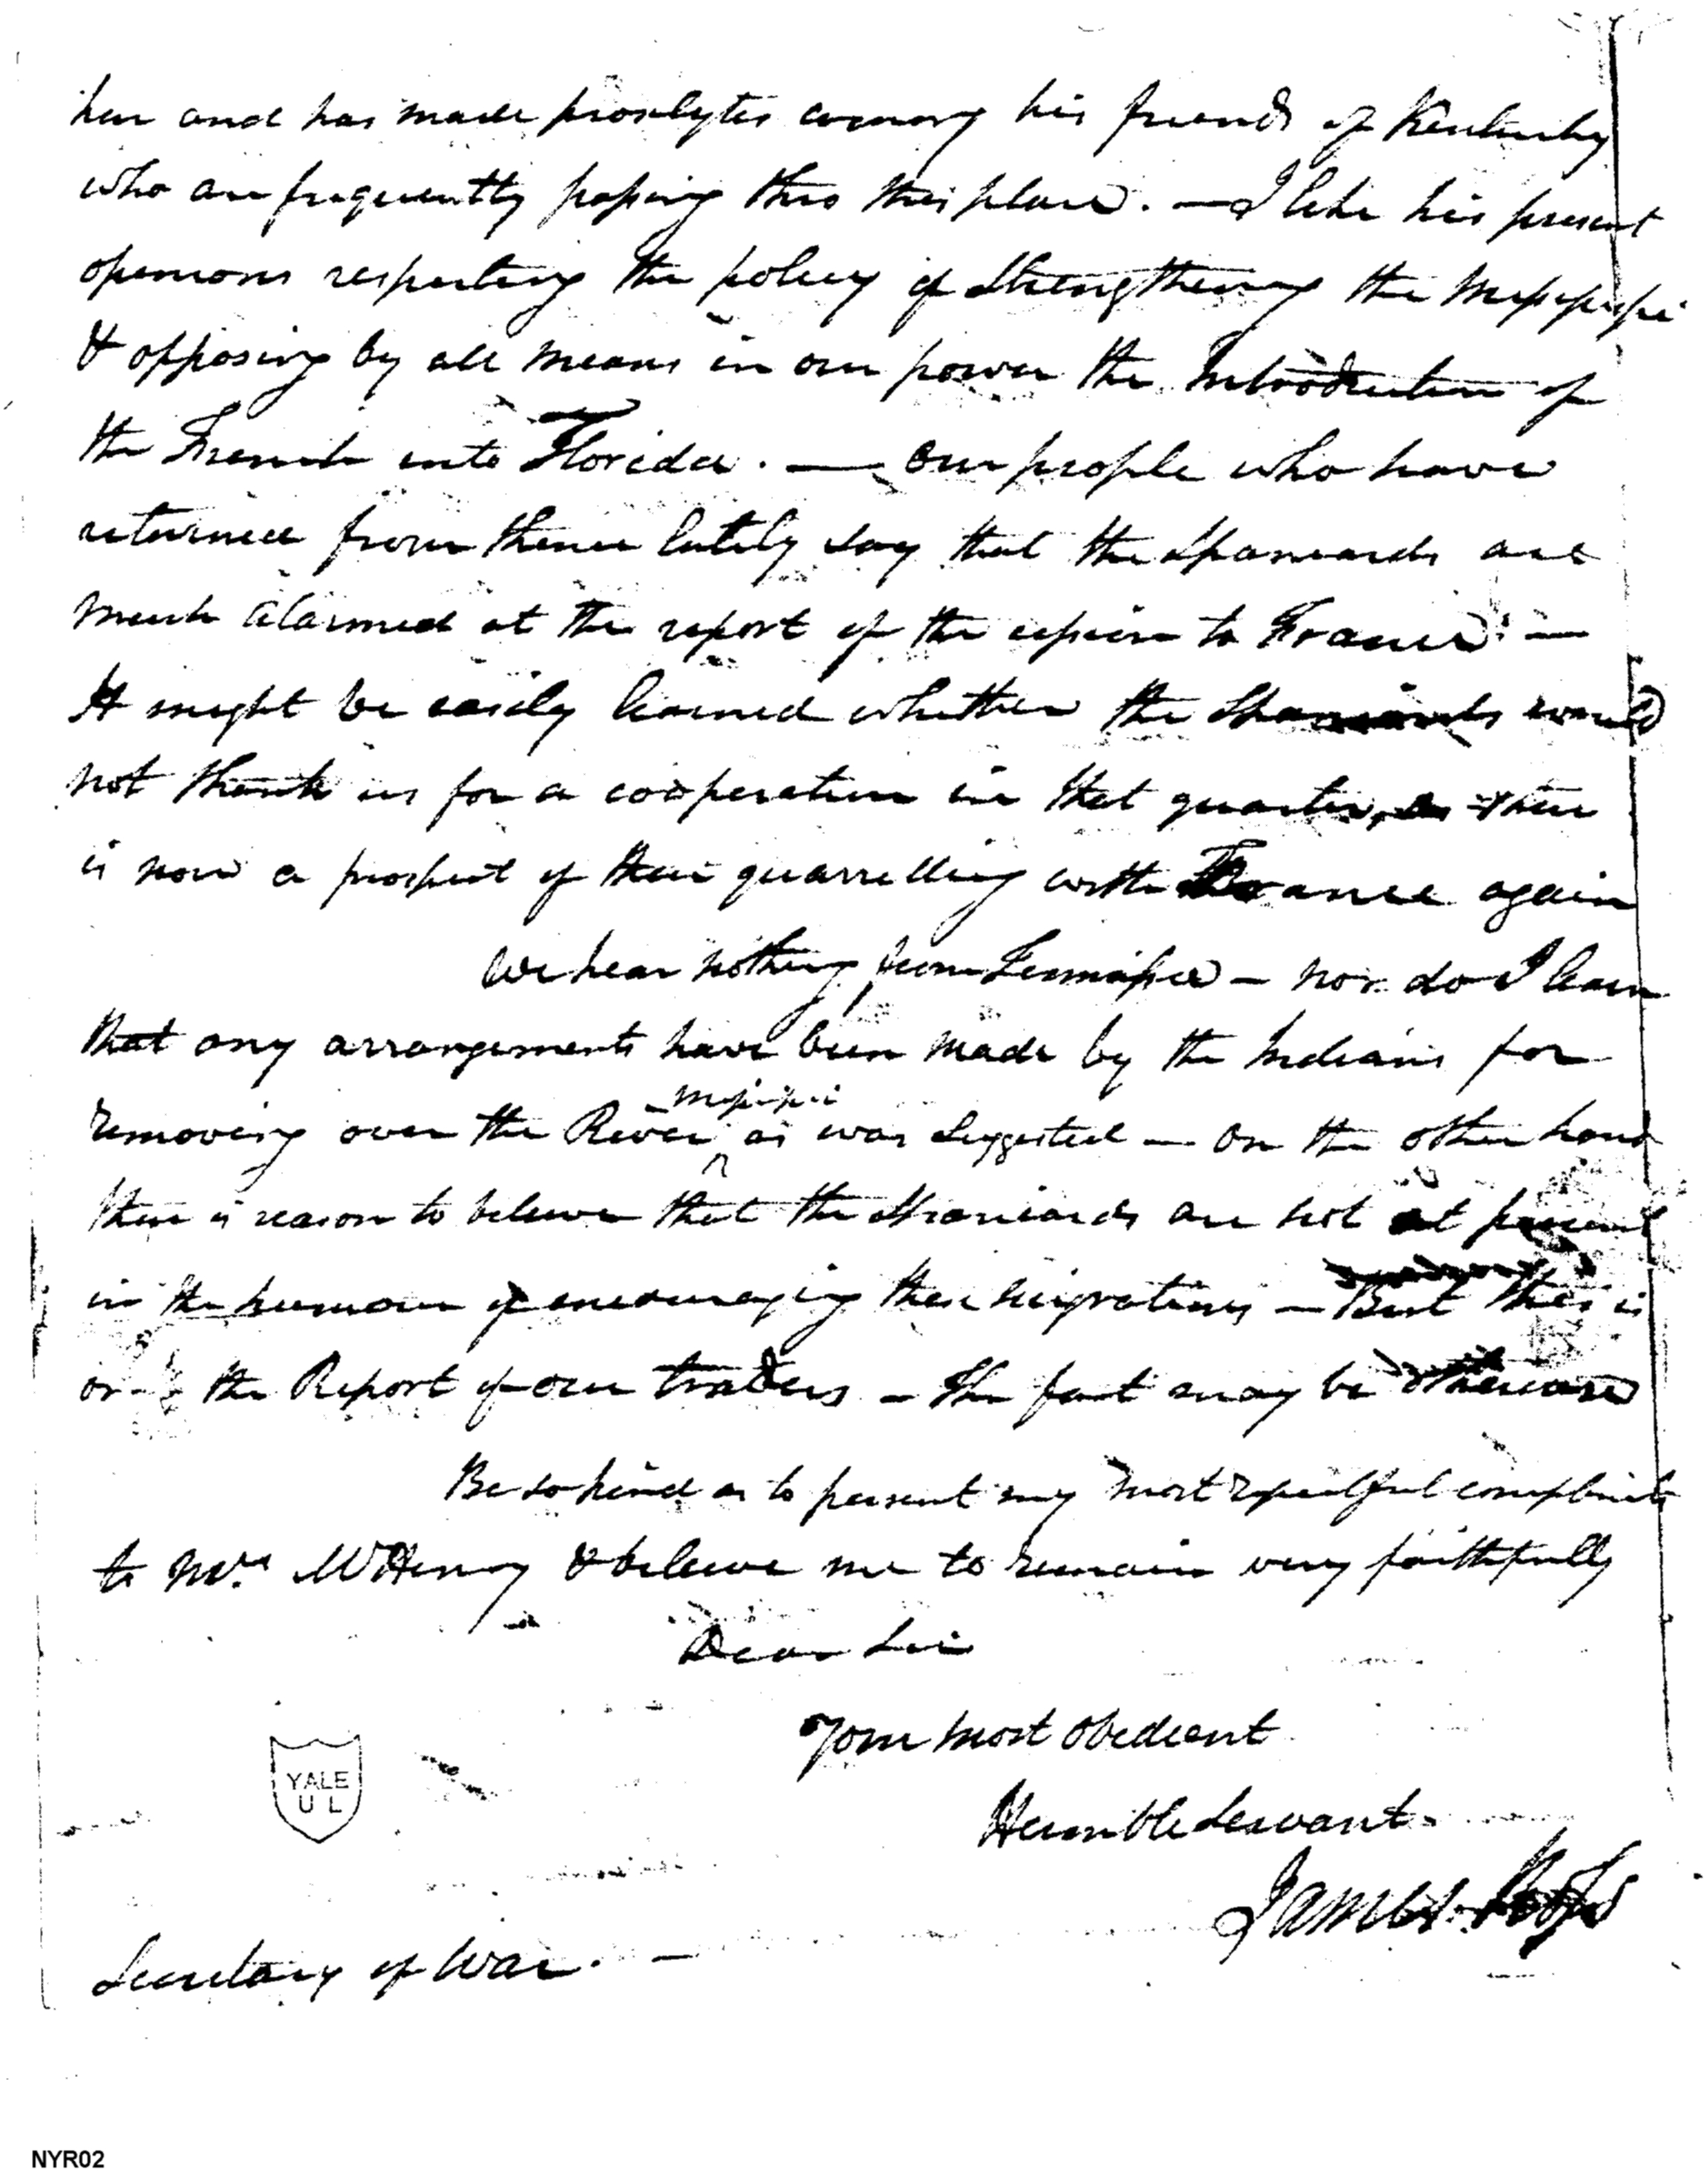 here and has made proselytes among his friends of Kentucky
who are frequently passing thro this place. — I like his present
opinions respecting the policy of Strengthening the Mississippi
& opposing by all means in our power the Introduction of
the French into Florida. — Our people who have
returned from thence lately say that the Spaniards are
much alarmed at the report of the cession to France. —
It might be easily learned whether the Spaniards would
not thank us for a cooperation in that quarter, as there
is now a prospect of their quarrelling with France again
We hear nothing from Tennassee — nor do I learn
that any arrangements have been made by the Indians for
Missisipi
removing over the River ^ as was Suggested — On the other hand
there is reason to believe that the Spaniards are not at present
in the humour of encouraging these emigrations — But this is
the Report of our traders — The fact may be otherwise
Be so kind as to present my most respectful compliments
to Mrs. McHenry & believe me to remain very faithfully
Dear Sir
Your most obedient
Humble Servant
James Ross
Secretary of War. —
YALE
U L
NYR02